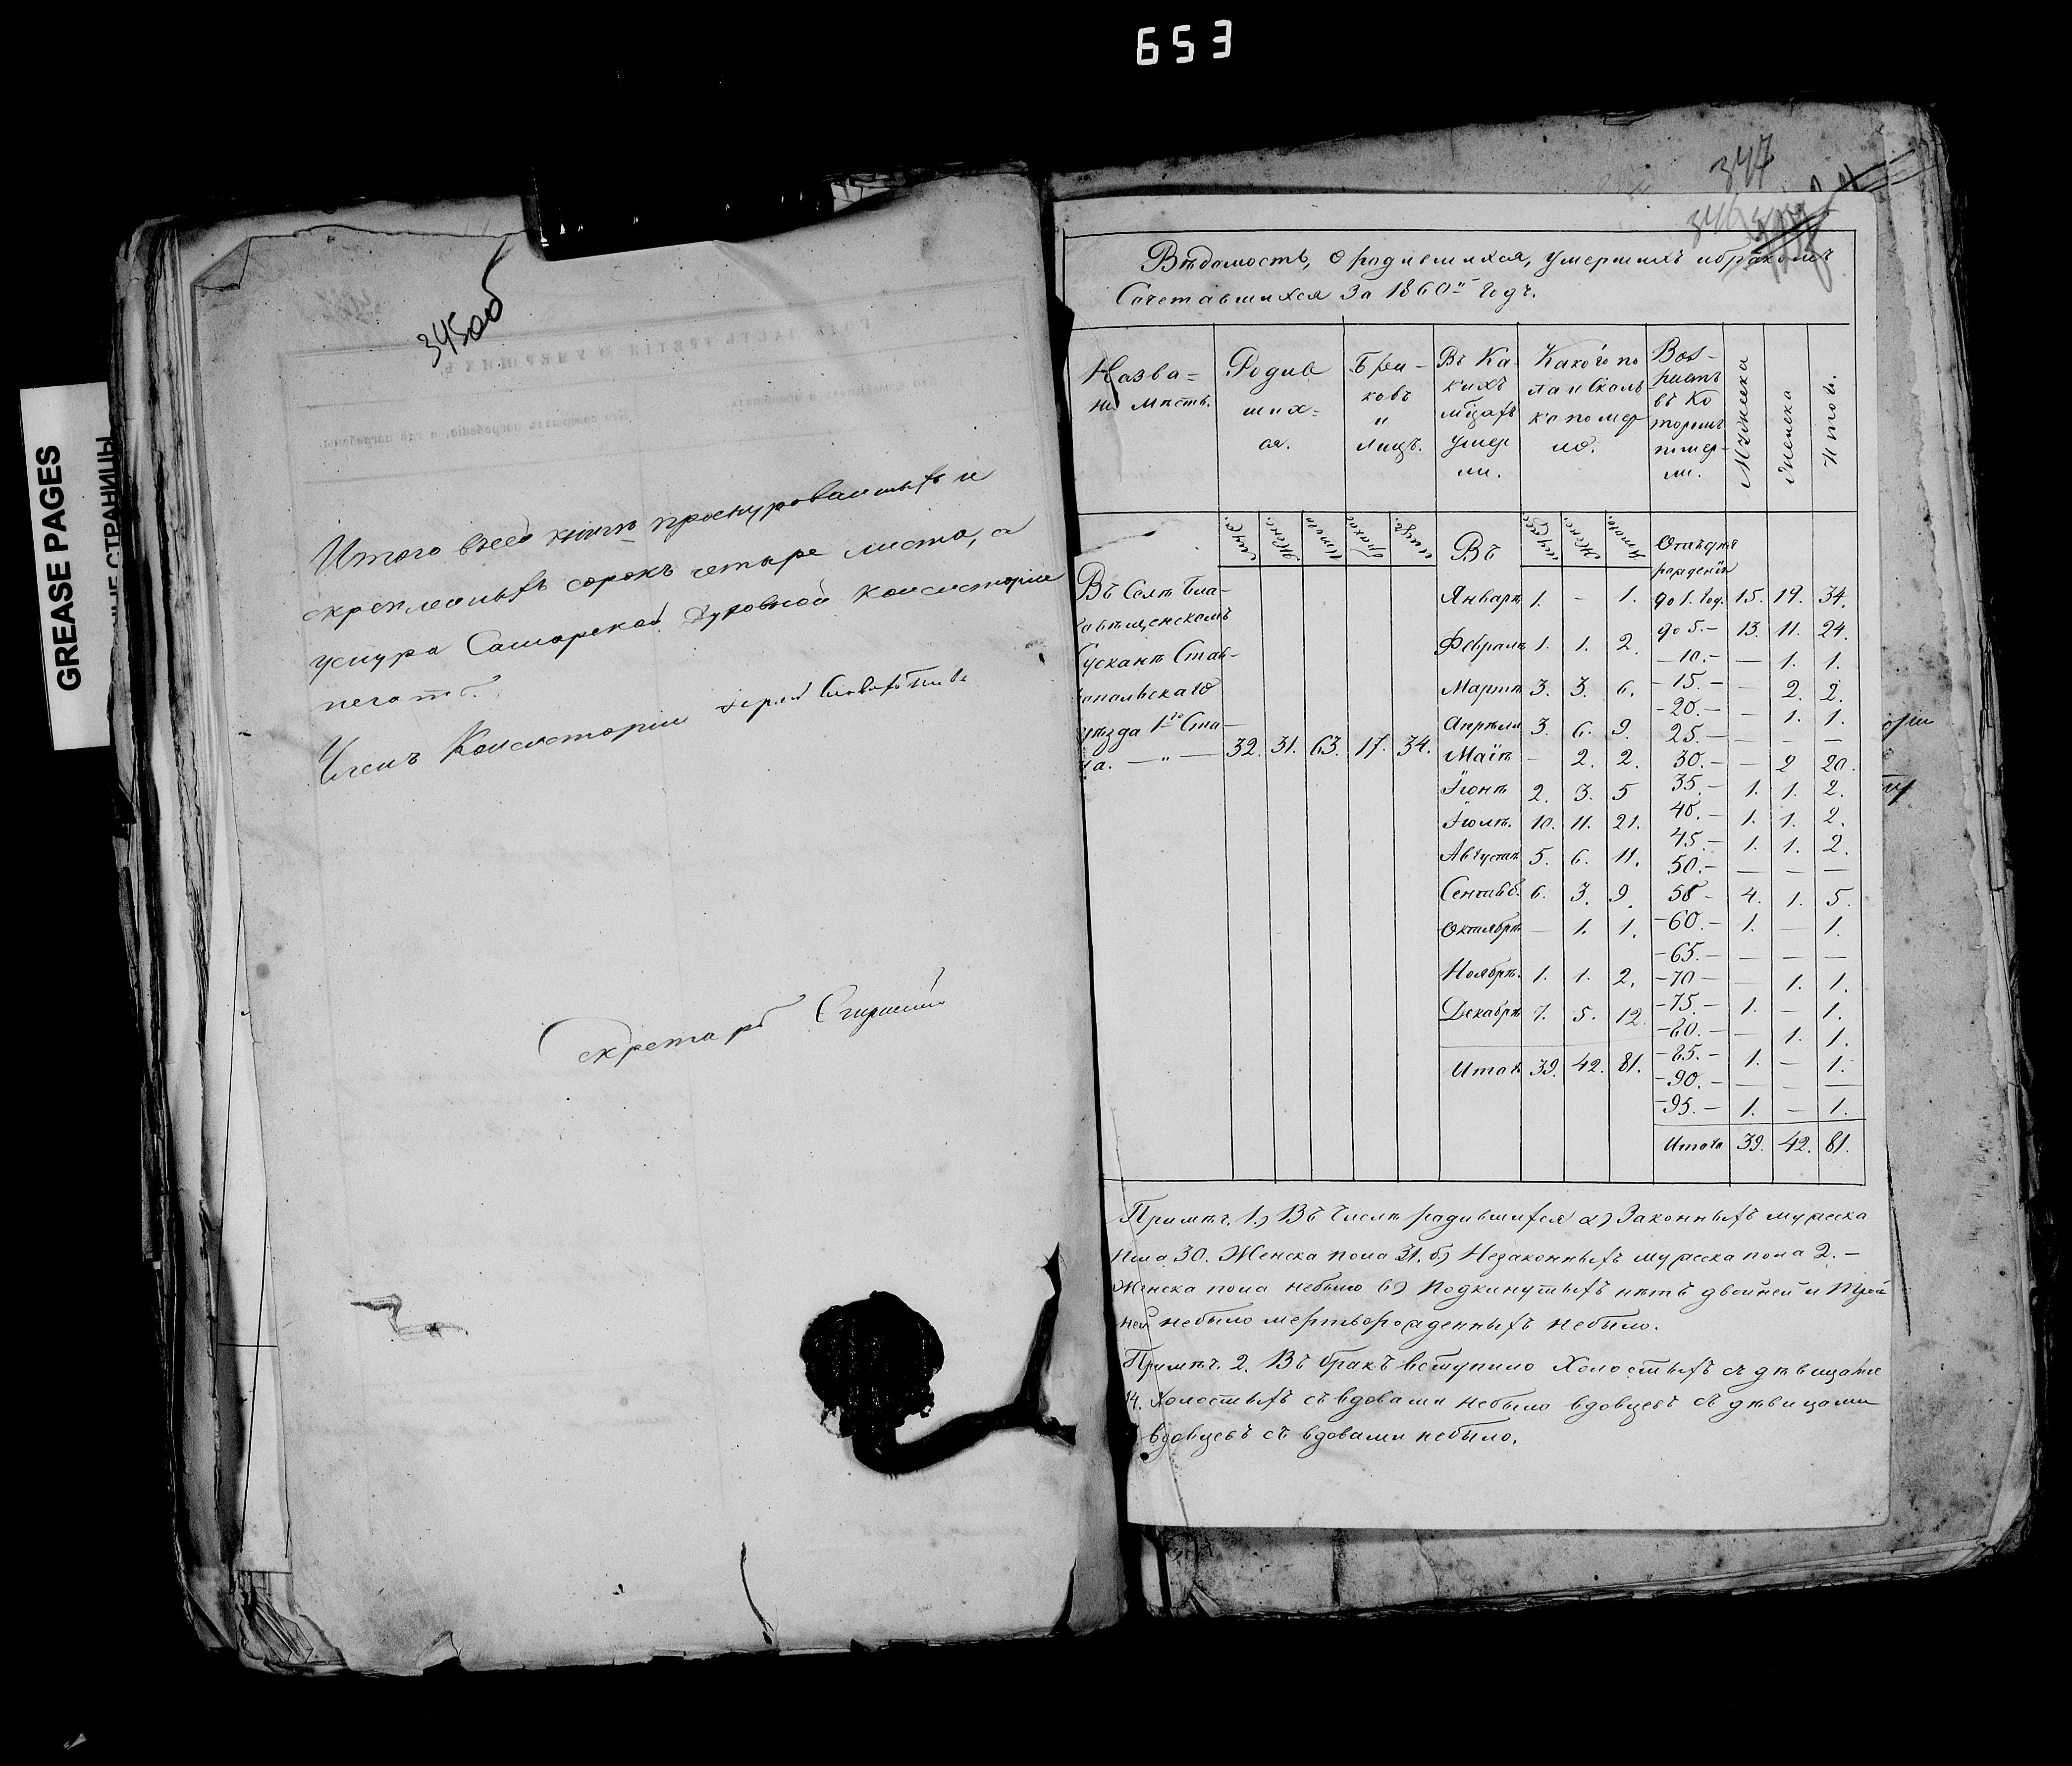 653
GREASE PAGES
345об
Итого в сей книгѣ прошнурованныхъ и
скрепленныхъ сорокъ четыре листа, а
у снура Самарской Духовной Консисторіи
печать.
Членъ Консисторіи Іерей
Секретарь
347
346
Вѣдомость, о родившихся, умершихъ и бракомъ
Сочетавшихся За 1860й Годъ.
Назва= Родив Бра- Въ Ка- Какого по Воз- Мужеска Женска Итого.
ніе мѣстъ. ших= ковъ кихъ ла и Сколь растъ
ся. и мцахъ ко помер въ Ко
лицъ. умер ло. торомъ
ли. помер-
ли.
Муж. Женс. Итого Брако. Лицъ. Въ Муж. Женс. Итого. Отъ дня рожденія
Въ Селѣ Бла- Январѣ 1. — 1. до 1. год. 15. 19. 34.
говѣщенскомъ до 5.— 13. 11. 24.
Сусканѣ Став- Февралѣ 1. 1. 2. —10.— — 1. 1.
ропольскаго Мартѣ 3. 3. 6. —15.— — 2. 2.
уѣзда 1го Ста- Апрѣлѣ 3. 6. 9. -20.— — 1. 1.
на. — „ — 32. 31. 63. 17. 34. 25.— — — —
Маѣ — 2. 2. 30.— — 2 20.
Іюнѣ 2. 3. 5 35.— 1. 1. 2.
Іюлѣ. 10. 11. 21. 40.— 1. 1. 2.
Августѣ 5. 6. 11. 45.— 1. 1. 2.
50.— — — —
Сентяб. 6. 3. 9. 55— 4. 1. 5.
Октябрѣ — 1. 1. —60.— 1. — 1.
—65.— — — —
Ноябрѣ. 1. 1. 2. —70— — 1. 1.
Декабрѣ 7. 5. 12. —75.— 1. — 1.
—80.— — 1. 1.
Итого 39. 42. 81. —85.— 1. — 1.
—90.— — — —
—95.— 1. — 1.
Итого 39. 42. 81.
Примѣч. 1.) Въ Числѣ родившихся а) Законныхъ мужеска
пола 30. Женска пола 31. б) Незаконныхъ мужеска пола 2.—
Женска пола небыло в) Подкинутыхъ нѣтъ двойней и Трой
ней небыло мертворожденныхъ небыло.
Примѣч. 2. Въ бракъ вступило Холостыхъ съ дѣвицами
14. Холостыхъ съ вдовами небыло вдовцевъ съ дѣвицами
вдовцевъ съ вдовами небыло.